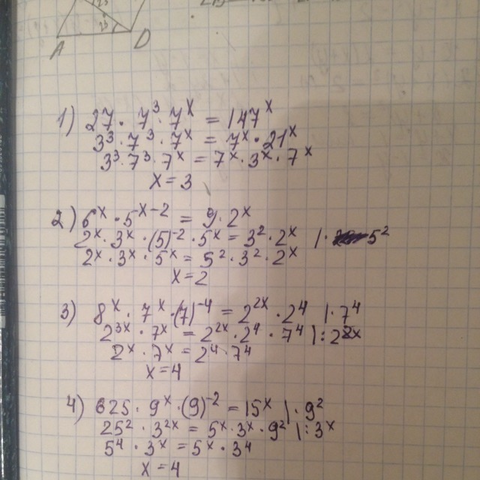 A D
1) 27 · 7³ · 7ˣ = 147ˣ
3³ · 7³ · 7ˣ = 7ˣ · 21ˣ
3³ · 7³ · 7ˣ = 7ˣ · 3ˣ · 7ˣ
x = 3
2) 6ˣ · 5ˣ⁻² = 9 · 2ˣ
2ˣ · 3ˣ · (5)⁻² · 5ˣ = 3² · 2ˣ | · 5²
2ˣ · 3ˣ · 5ˣ = 5² · 3² · 2ˣ
x = 2
3) 8ˣ · 7ˣ · (7)⁻⁴ = 2²ˣ · 2⁴ | · 7⁴
2³ˣ · 7ˣ = 2²ˣ · 2⁴ · 7⁴ | : 2²ˣ
2ˣ · 7ˣ = 2⁴ · 7⁴
x = 4
4) 625 · 9ˣ · (9)⁻² = 15ˣ | · 9²
25² · 3²ˣ = 5ˣ · 3ˣ · 9² | : 3ˣ
5⁴ · 3ˣ = 5ˣ · 3⁴
x = 4